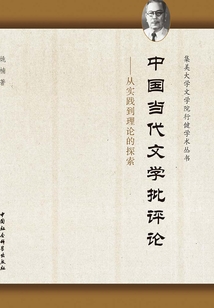 集美大学文学院行健学术丛书
中国当代文学批评论
——从实践到理论的探索
施楠 著
中国社会科学出版社